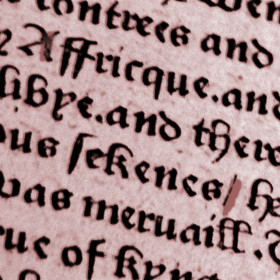 contrees and
Affricque.and
libye.and there
ous sekenes/ he
was meruaill.
rue of kyn